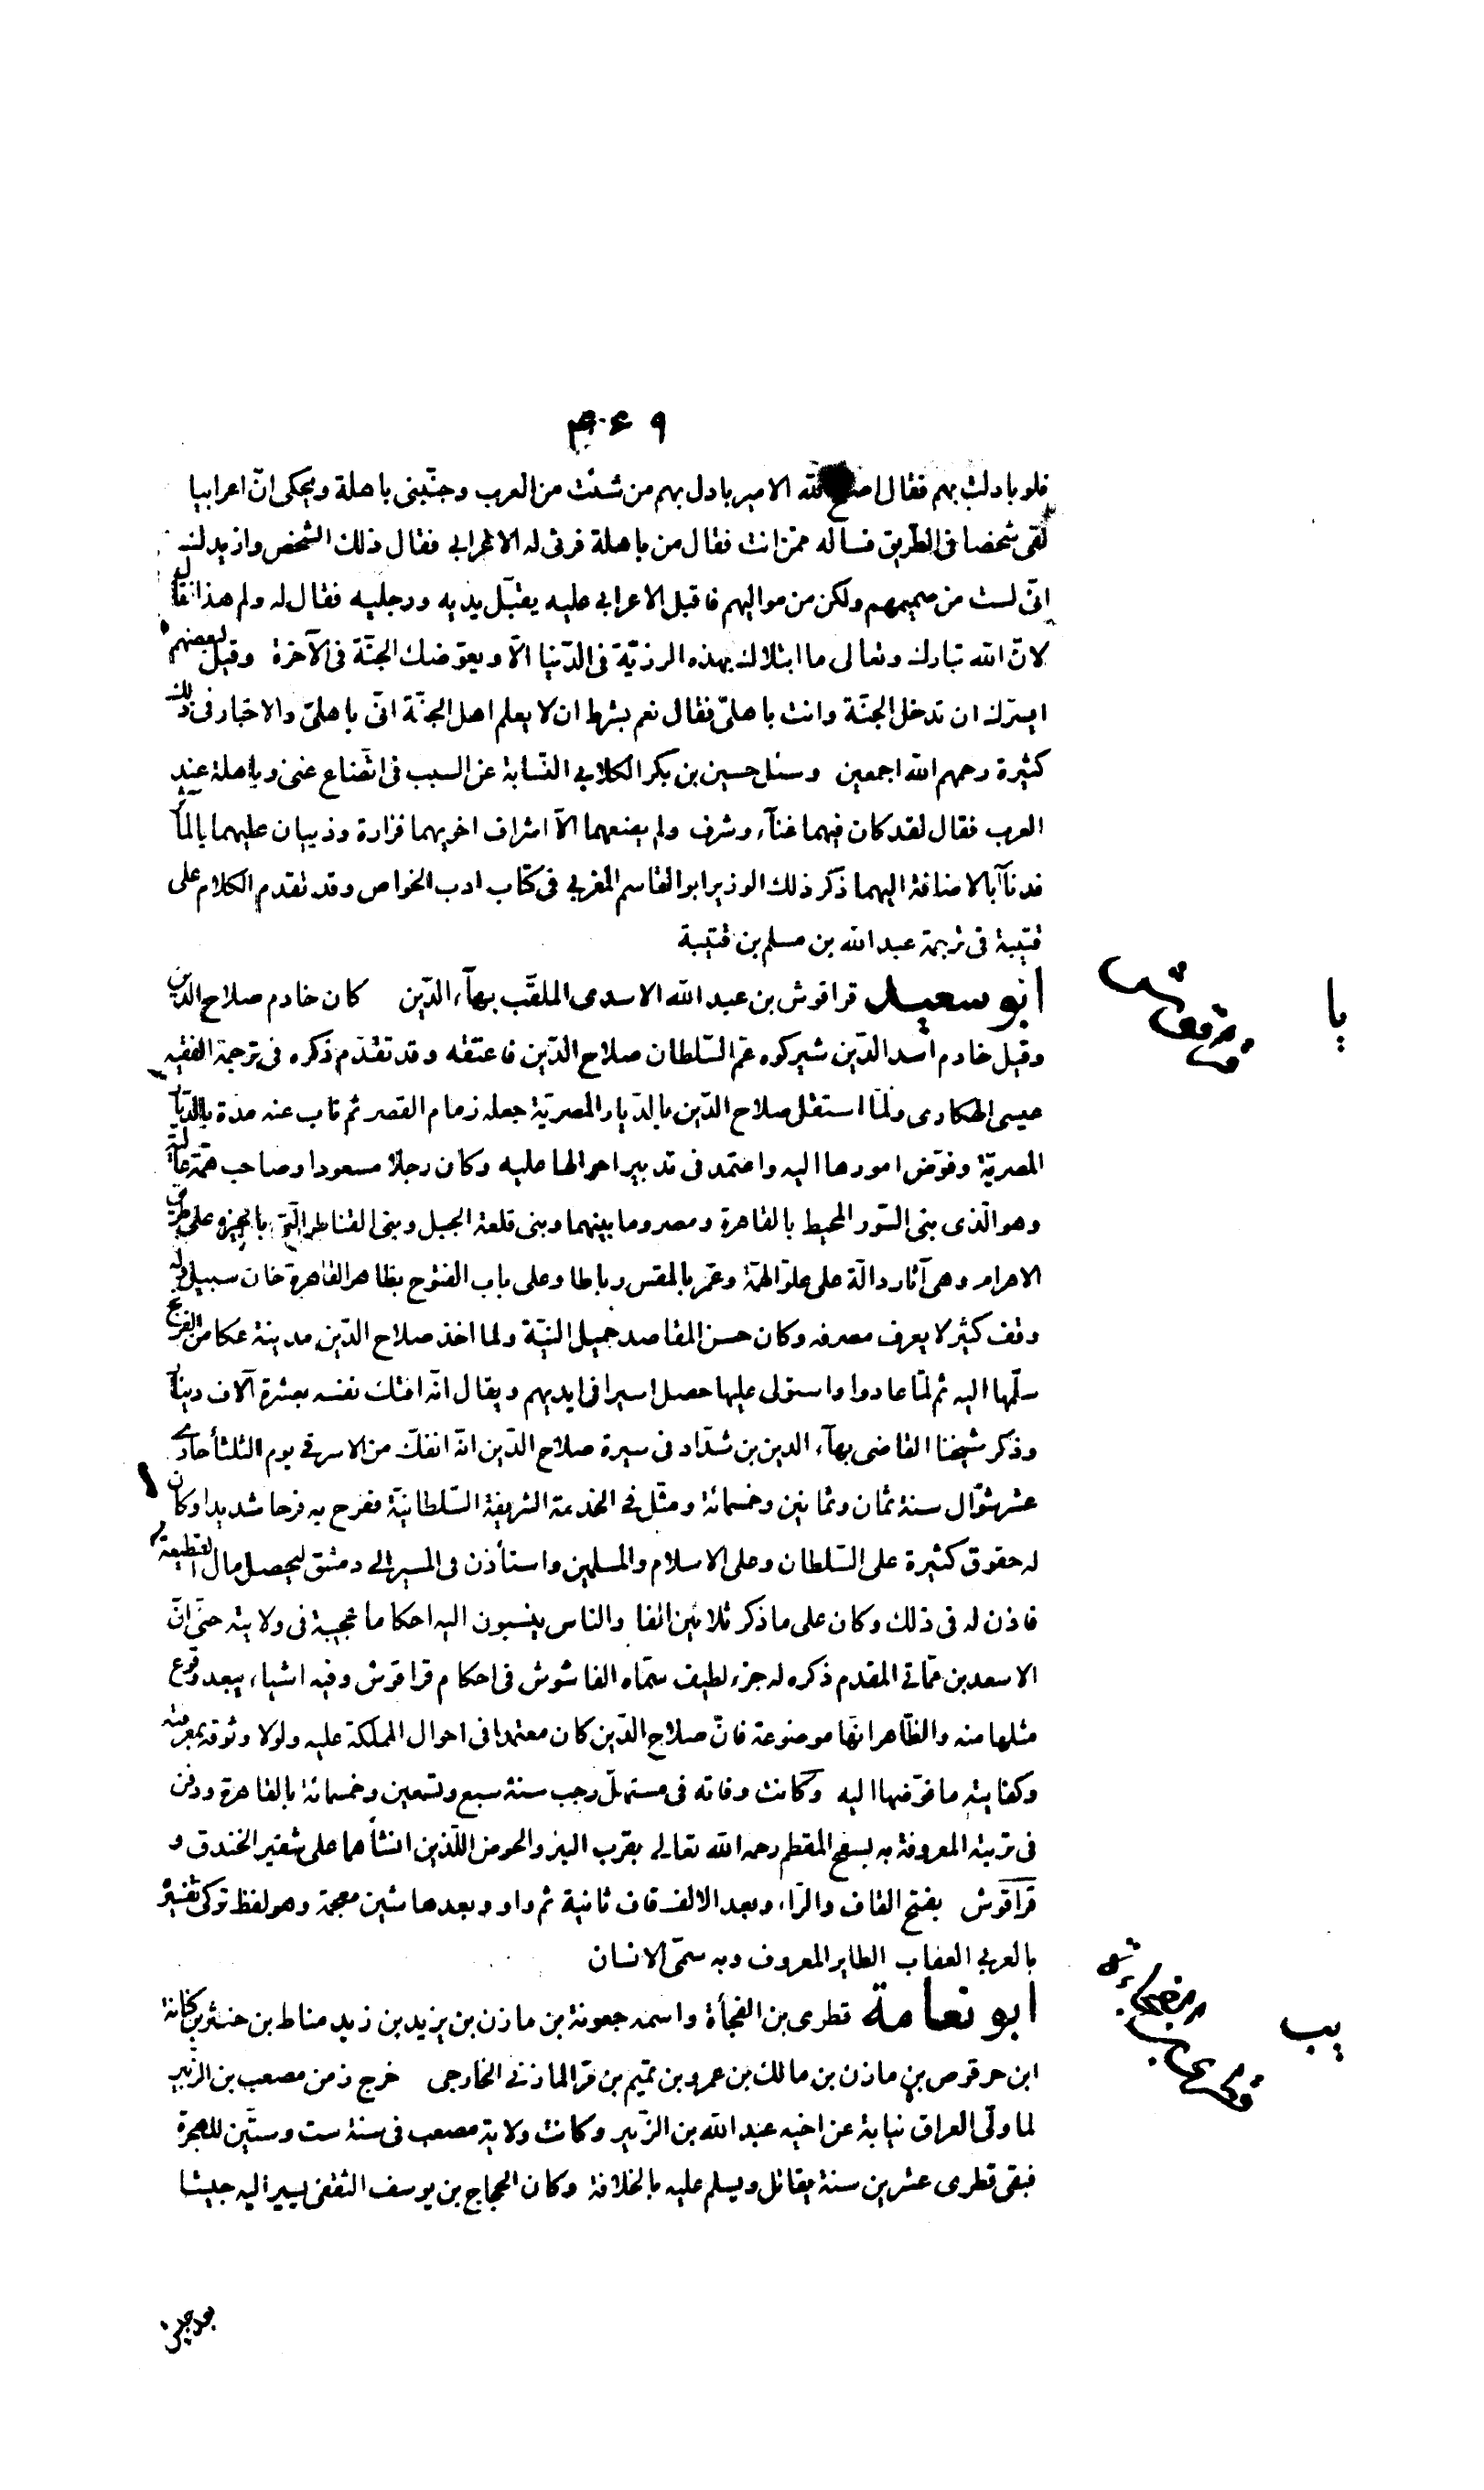 ٤٠٩
فلو بادلت بهم فقال اصلح الله الامير بادل بهم من شئت من العرب وجنّبنى باهلة ويحكى انّ اعرابيا
لقى شخصا فى الطريق فساله ممّن انت فقال من باهلة فرثى له الاعرابى فقال ذلك الشخص وازيدك
انى لست من صميمهم ولكن من مواليهم فاقبل الاعرابى عليه يقبّل يديه ورجليه فقال له ولم هذا فقال
لانّ الله تبارك وتعالى ما ابتلاك بهذه الرزيّة فى الدّنيا الّا ويعوّضك الجنّة فى الآخرة وقيل لبعضهم
ايسرّك ان تدخل الجنّة وانت باهلىّ فقال نعم بشرط ان لا يعلم اهل الجنّة انى باهلىّ والاخبار فى ذلك
كثيرة رحمهم الله اجمعين وسئل حسين بن بكر الكلابى النّسابة عن السبب فى اتّضاع غنى وباهلة عند
العرب فقال لقد كان فيهما غنآء وشرف ولم يضعهما الّا اشراف اخويهما فزارة وذبيان عليهما بالمآثر
فدنآ بالاضافة اليهما ذكر ذلك الوزير ابو القاسم المغربى فى كتاب ادب الخواص وقد تقدم الكلام على
قتيبة فى ترجمة عبد الله بن مسلم بن قتيبة
يا
قراقوش
ابو سعيد قراقوش بن عبد الله الاسدى الملقّب بهآء الدّين كان خادم صلاح الدين
وقيل خادم اسد الدّين شيركوه عمّ السّلطان صلاح الدّين فاعتقه وقد تقدّم ذكره فى ترجمة الفقيه
عيسى الهكارى ولمّا استقل صلاح الدّين بالدّيار المصريّة جعله زمام القصر ثم ناب عنه مدّة بالدّيار
المصريّة وفوّض امورها اليه واعتمد فى تدبير احوالها عليه وكان رجلا مسعودا وصاحب همّة عالية
وهو الّذى بنى السّور المحيط بالقاهرة ومصر وما بينهما وبنى قلعة الجبل وبنى القناطر الّتى بالجيزه على طريق
الاهرام وهى آثار دالّة على علوّ الهمّة وعمّر بالمقس رباطا وعلى باب الفتوح بظاهر القاهرة خان سبيل وله
وقف كثير لا يعرف مصرفه وكان حسن المقاصد جميل النيّة ولما اخذ صلاح الدّين مدينة عكا من الفرنج
سلّمها اليه ثم لمّا عادوا واستولى عليها حصل اسيرا فى ايديهم ويقال انّه افتك نفسه بعشرة آلاف دينار
وذكر شيخنا القاضى بهآء الدين بن شدّاد فى سيرة صلاح الدّين انّه انفكّ من الاسر فى يوم الثلثآ حادى
عشر شوّال سنة ثمان وثمانين وخمسمائة ومثّل فى الخدمة الشريفة السّلطانيّة ففرح به فرحا شديدا وكان
له حقوق كثيرة على السّلطان وعلى الاسلام والمسلمين واستأذن فى المسير الى دمشق ليحصل مال القطيعة
فاذن له فى ذلك وكان على ما ذكر ثلاثين الفا والناس ينسبون اليه احكاما عجيبة فى ولايته حتّى انّ
الاسعد بن ممّاتى المقدم ذكره له جزء لطيف سمّاه الفاشوش فى احكام قراقوش وفيه اشياء يبعد وقوع
مثلها منه والظّاهر انّها موضوعة فانّ صلاح الدّين كان معتمدا فى احوال المملكة عليه ولولا وثوقه بمعرفته
وكفايته ما فوّضها اليه وكانت وفاته فى مستهلّ رجب سنة سبع وتسعين وخمسمائة بالقاهرة ودفن
فى تربته المعروفة به بسفح المقطم رحمه الله تعالى بقرب البئر والحوض اللّذين انشأهما على شفير الخندق و
قراقوش بفتح القاف والرّاء وبعد الالف قاف ثانية ثم واو وبعدها شين معجمة وهو لفظ تركى تفسيره
بالعربى العقاب الطاير المعروف وبه سمّى الانسان
يب
ابو نعامة قطرى بن الفجأة واسمه جعونة بن مازن بن يزيد بن زيد مناط بن حنثر بن كنانة
ابن حرقوص بن مازن بن مالك بن عمرو بن تميم بن مرّ المازنى الخارجى خرج زمن مصعب بن الزّبير
لما ولّى العراق نيابة عن اخيه عبد الله بن الزّبير وكانت ولاية مصعب فى سنة ست وستّين للهجرة
فبقى قطرى عشرين سنة يقاتل ويسلم عليه بالخلافة وكان الحجاج بن يوسف الثقفى يسير اليه جيشا
بعد جيش